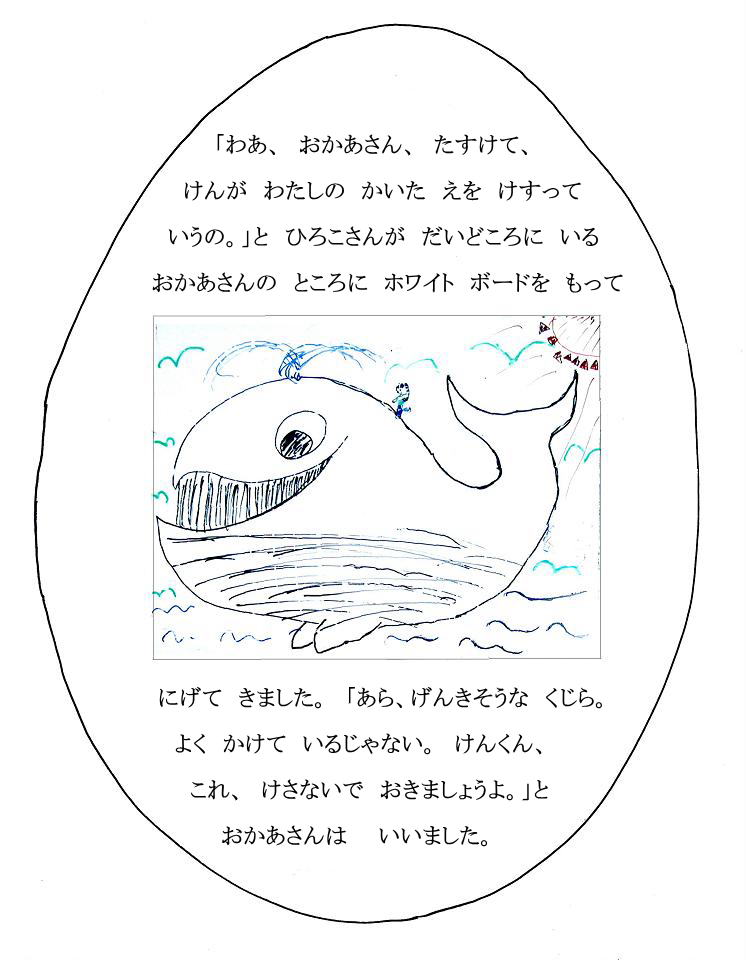 「わあ、 おかあさん、 たすけて、
けんが わたしの かいた えを けすって
いうの。」と ひろこさんが だいどころに いる
おかあさんの ところに ホワイト ボードを もって
にげて きました。 「あら、げんきそうな くじら。
よく かけて いるじゃない。 けんくん、
これ、 けさないで おきましょうよ。」と
おかあさんは いいました。